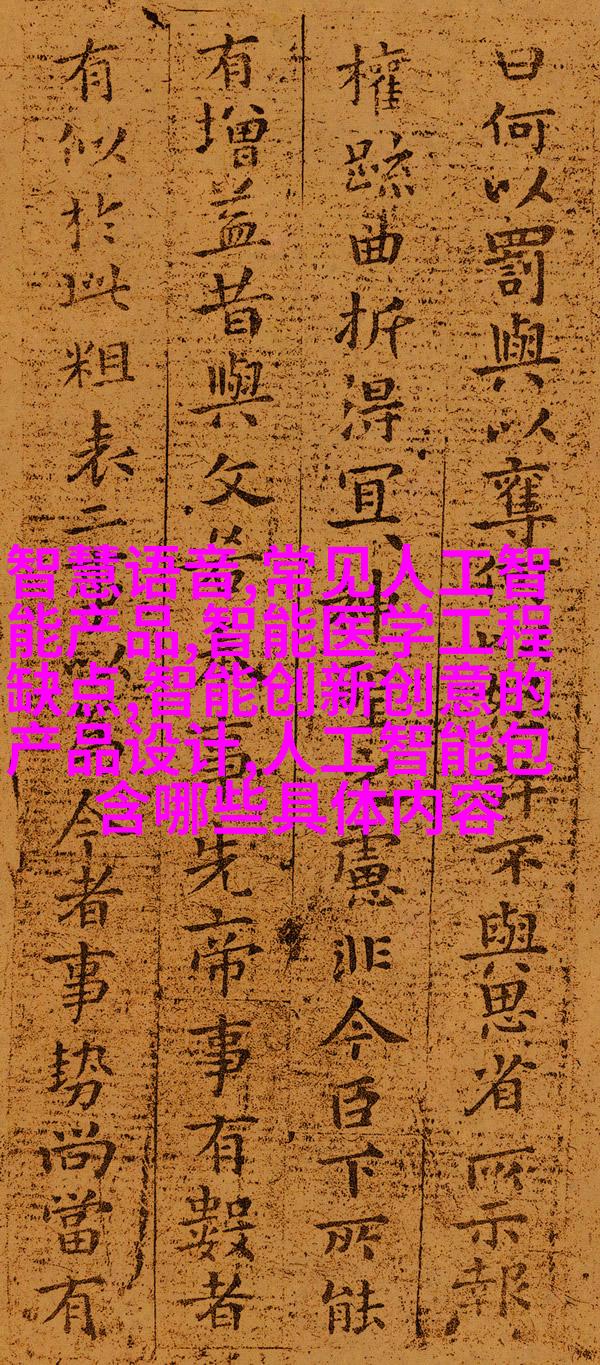 智慧语音,常见人工智
能产品,智能医学工程
缺点,智能创新创意的
产品设计,人工智能包
含哪些具体内容
曰何以罰與以奪 許不與思省所示報
權疏曲折得宜 慮非今臣下所能
有增益昔與文 事先帝事有數者
有似於此粗表二 今者事勢尚當有